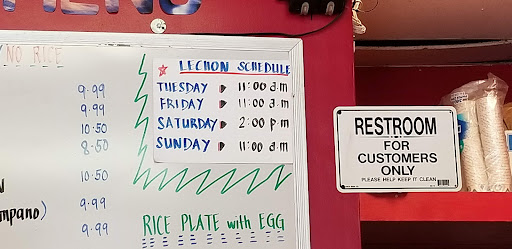 /NO RICE
9.99
9.99
10.50
8.50
10.50
mpano)
9.99
9.99
LECHON SCHEDULE
TUESDAY 11:00 a.m
FRIDAY 11:00 a.m
SATURDAY 2:00 p.m
SUNDAY 11:00 a.m
RICE PLATE with EGG
RESTROOM
FOR
CUSTOMERS
ONLY
PLEASE HELP KEEP IT CLEAN